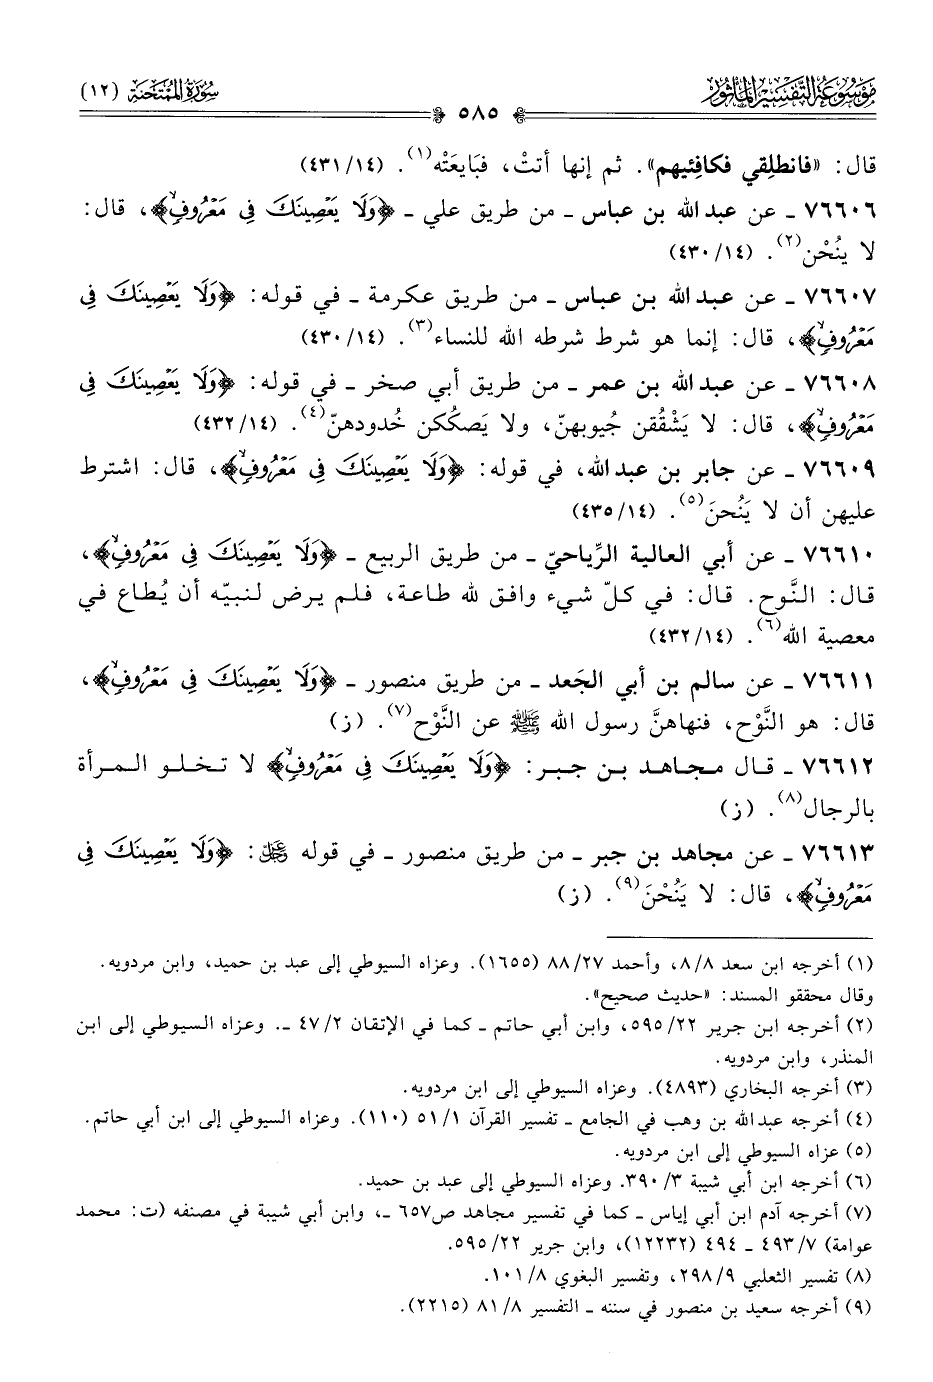 مَوْسُوعَةُ التَّفْسِيرِ المَأْثُور
سُورَةُ المُمْتَحنَة (١٢)
٥٨٥
قال: «فانطلِقي فكافِئيهم». ثم إنها أتتْ، فبَايعَتْه(١). (٤٣١/١٤)
٧٦٦٠٦ ـ عن عبد الله بن عباس ـ من طريق علي ـ ﴿وَلَا يَعْصِينَكَ فِي مَعْرُوفٍ﴾، قال:
لا ينُحْن(٢). (٤٣٠/١٤)
٧٦٦٠٧ ـ عن عبد الله بن عباس ـ من طريق عكرمة ـ في قوله: ﴿وَلَا يَعْصِينَكَ فِي
مَعْرُوفٍ﴾، قال: إنما هو شرط شرطه الله للنساء(٣). (٤٣٠/١٤)
٧٦٦٠٨ ـ عن عبد الله بن عمر ـ من طريق أبي صخر ـ في قوله: ﴿وَلَا يَعْصِينَكَ فِي
مَعْرُوفٍ﴾، قال: لا يَشْقُقن جُيوبهنّ، ولا يَصكُكن خُدودهنّ(٤). (٤٣٢/١٤)
٧٦٦٠٩ ـ عن جابر بن عبد الله، في قوله: ﴿وَلَا يَعْصِينَكَ فِي مَعْرُوفٍ﴾، قال: اشترط
عليهن أن لا يَنُحنَ(٥). (٤٣٥/١٤)
٧٦٦١٠ ـ عن أبي العالية الرِّياحيّ ـ من طريق الربيع ـ ﴿وَلَا يَعْصِينَكَ فِي مَعْرُوفٍ﴾،
قال: النَّوح. قال: في كلّ شيء وافق لله طاعة، فلم يرض لنبيّه أن يُطاع في
معصية الله(٦). (٤٣٢/١٤)
٧٦٦١١ ـ عن سالم بن أبي الجَعد ـ من طريق منصور ـ ﴿وَلَا يَعْصِينَكَ فِي مَعْرُوفٍ﴾،
قال: هو النَّوْح، فنهاهنَّ رسول الله ﷺ عن النَّوْح(٧). (ز)
٧٦٦١٢ ـ قال مجاهد بن جبر: ﴿وَلَا يَعْصِينَكَ فِي مَعْرُوفٍ﴾ لا تخلو المرأة
بالرجال(٨). (ز)
٧٦٦١٣ ـ عن مجاهد بن جبر ـ من طريق منصور ـ في قوله عز وجل: ﴿وَلَا يَعْصِينَكَ فِي
مَعْرُوفٍ﴾، قال: لا يَنُحْنَ(٩). (ز)
(١) أخرجه ابن سعد ٨/٨، وأحمد ٨٨/٢٧ (١٦٥٥). وعزاه السيوطي إلى عبد بن حميد، وابن مردويه.
وقال محققو المسند: «حديث صحيح».
(٢) أخرجه ابن جرير ٥٩٥/٢٢، وابن أبي حاتم ـ كما في الإتقان ٤٧/٢ ـ. وعزاه السيوطي إلى ابن
المنذر، وابن مردويه.
(٣) أخرجه البخاري (٤٨٩٣). وعزاه السيوطي إلى ابن مردويه.
(٤) أخرجه عبد الله بن وهب في الجامع ـ تفسير القرآن ٥١/١ (١١٠). وعزاه السيوطي إلى ابن أبي حاتم.
(٥) عزاه السيوطي إلى ابن مردويه.
(٦) أخرجه ابن أبي شيبة ٣٩٠/٣. وعزاه السيوطي إلى عبد بن حميد.
(٧) أخرجه آدم ابن أبي إياس ـ كما في تفسير مجاهد ص٦٥٧ ـ، وابن أبي شيبة في مصنفه (ت: محمد
عوامة) ٤٩٣/٧ ـ ٤٩٤ (١٢٢٣٢)، وابن جرير ٥٩٥/٢٢.
(٨) تفسير الثعلبي ٢٩٨/٩، وتفسير البغوي ١٠١/٨.
(٩) أخرجه سعيد بن منصور في سننه ـ التفسير ٨١/٨ (٢٢١٥).